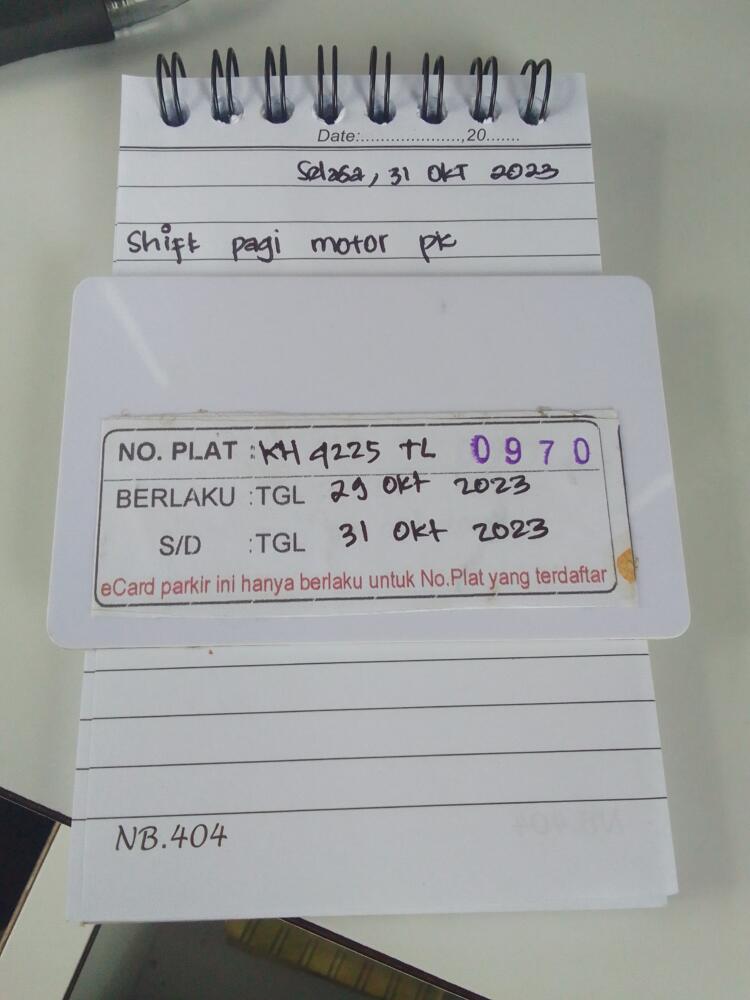 Date:....................,20.......
Selasa, 31 OKT 2023
Shift pagi motor pk
NO. PLAT : KH 4225 TL 0970
BERLAKU : TGL 29 OKT 2023
S/D : TGL 31 OKT 2023
eCard parkir ini hanya berlaku untuk No.Plat yang terdaftar
NB.404